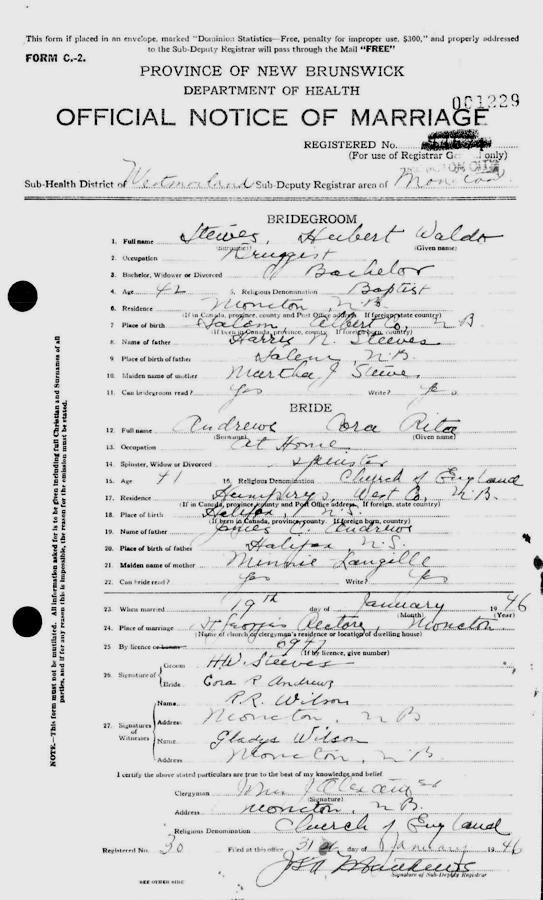 This form if placed in an envelope, marked "Dominion Statistics—Free, penalty for improper use, $300," and properly addressed
to the Sub-Deputy Registrar will pass through the Mail "FREE"
FORM C.-2.
PROVINCE OF NEW BRUNSWICK
DEPARTMENT OF HEALTH
001229
OFFICIAL NOTICE OF MARRIAGE
REGISTERED No.
(For use of Registrar only)
Sub-Health District of Westmorland Sub-Deputy Registrar area of Moncton
BRIDEGROOM
1. Full name Steeves, Herbert Waldo
(Surname) (Given name)
2. Occupation Druggist
3. Bachelor, Widower or Divorced Bachelor
4. Age 42 5. Religious Denomination Baptist
6. Residence Moncton, N.B.
(If in Canada, province, county and Post Office address. If foreign, state country)
7. Place of birth Salem Albert Co. N.B.
(If born in Canada, province, county. If foreign born, country)
8. Name of father Harris N. Steeves
9. Place of birth of father Salem, N.B.
10. Maiden name of mother Martha J Steeves
11. Can bridegroom read? Yes Write? Yes
BRIDE
12. Full name Andrews Cora Rita
(Surname) (Given name)
13. Occupation At Home
14. Spinster, Widow or Divorced Spinster
15. Age 41 16. Religious Denomination Church of England
17. Residence Humphreys, West. Co., N.B.
(If in Canada, province, county and Post Office address. If foreign, state country)
18. Place of birth Halifax, N.S.
(If born in Canada, province, county. If foreign born, country)
19. Name of father James C. Andrews
20. Place of birth of father Halifax, N.S.
21. Maiden name of mother Minnie Langille
22. Can bride read? Yes Write? Yes
23. When married 19th day of January 1946
(Month) (Year)
24. Place of marriage St Georges Rectory, Moncton
(Name of church or clergyman's residence or location of dwelling house)
25. By licence or banns
(If by licence, give number)
26. Signature of Groom H.W. Steeves
Bride Cora R Andrews
27. Signatures of Witnesses
Name R.R. Wilson
Address Moncton, N B
Name Gladys Wilson
Address Moncton, N.B.
I certify the above stated particulars are true to the best of my knowledge and belief
Clergyman
(Signature)
Address Moncton, N.B.
Religious Denomination Church of England
Registered No. 30 Filed at this office 31st day of January 1946
Signature of Sub-Deputy Registrar
SEE OTHER SIDE
NOTE.—This form must not be mutilated. All information asked for is to be given including full Christian and Surnames of all
parties, and if for any reason this is impossible, the reason for the omission must be stated.